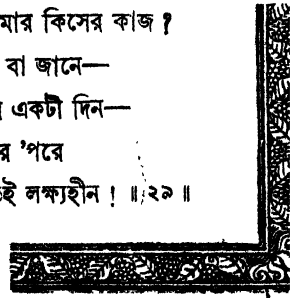 মার কিসের কাজ ?
বা জানে—
একটী দিন—
র 'পরে
ই লক্ষ্যহীন ! ॥ ২৯ ॥